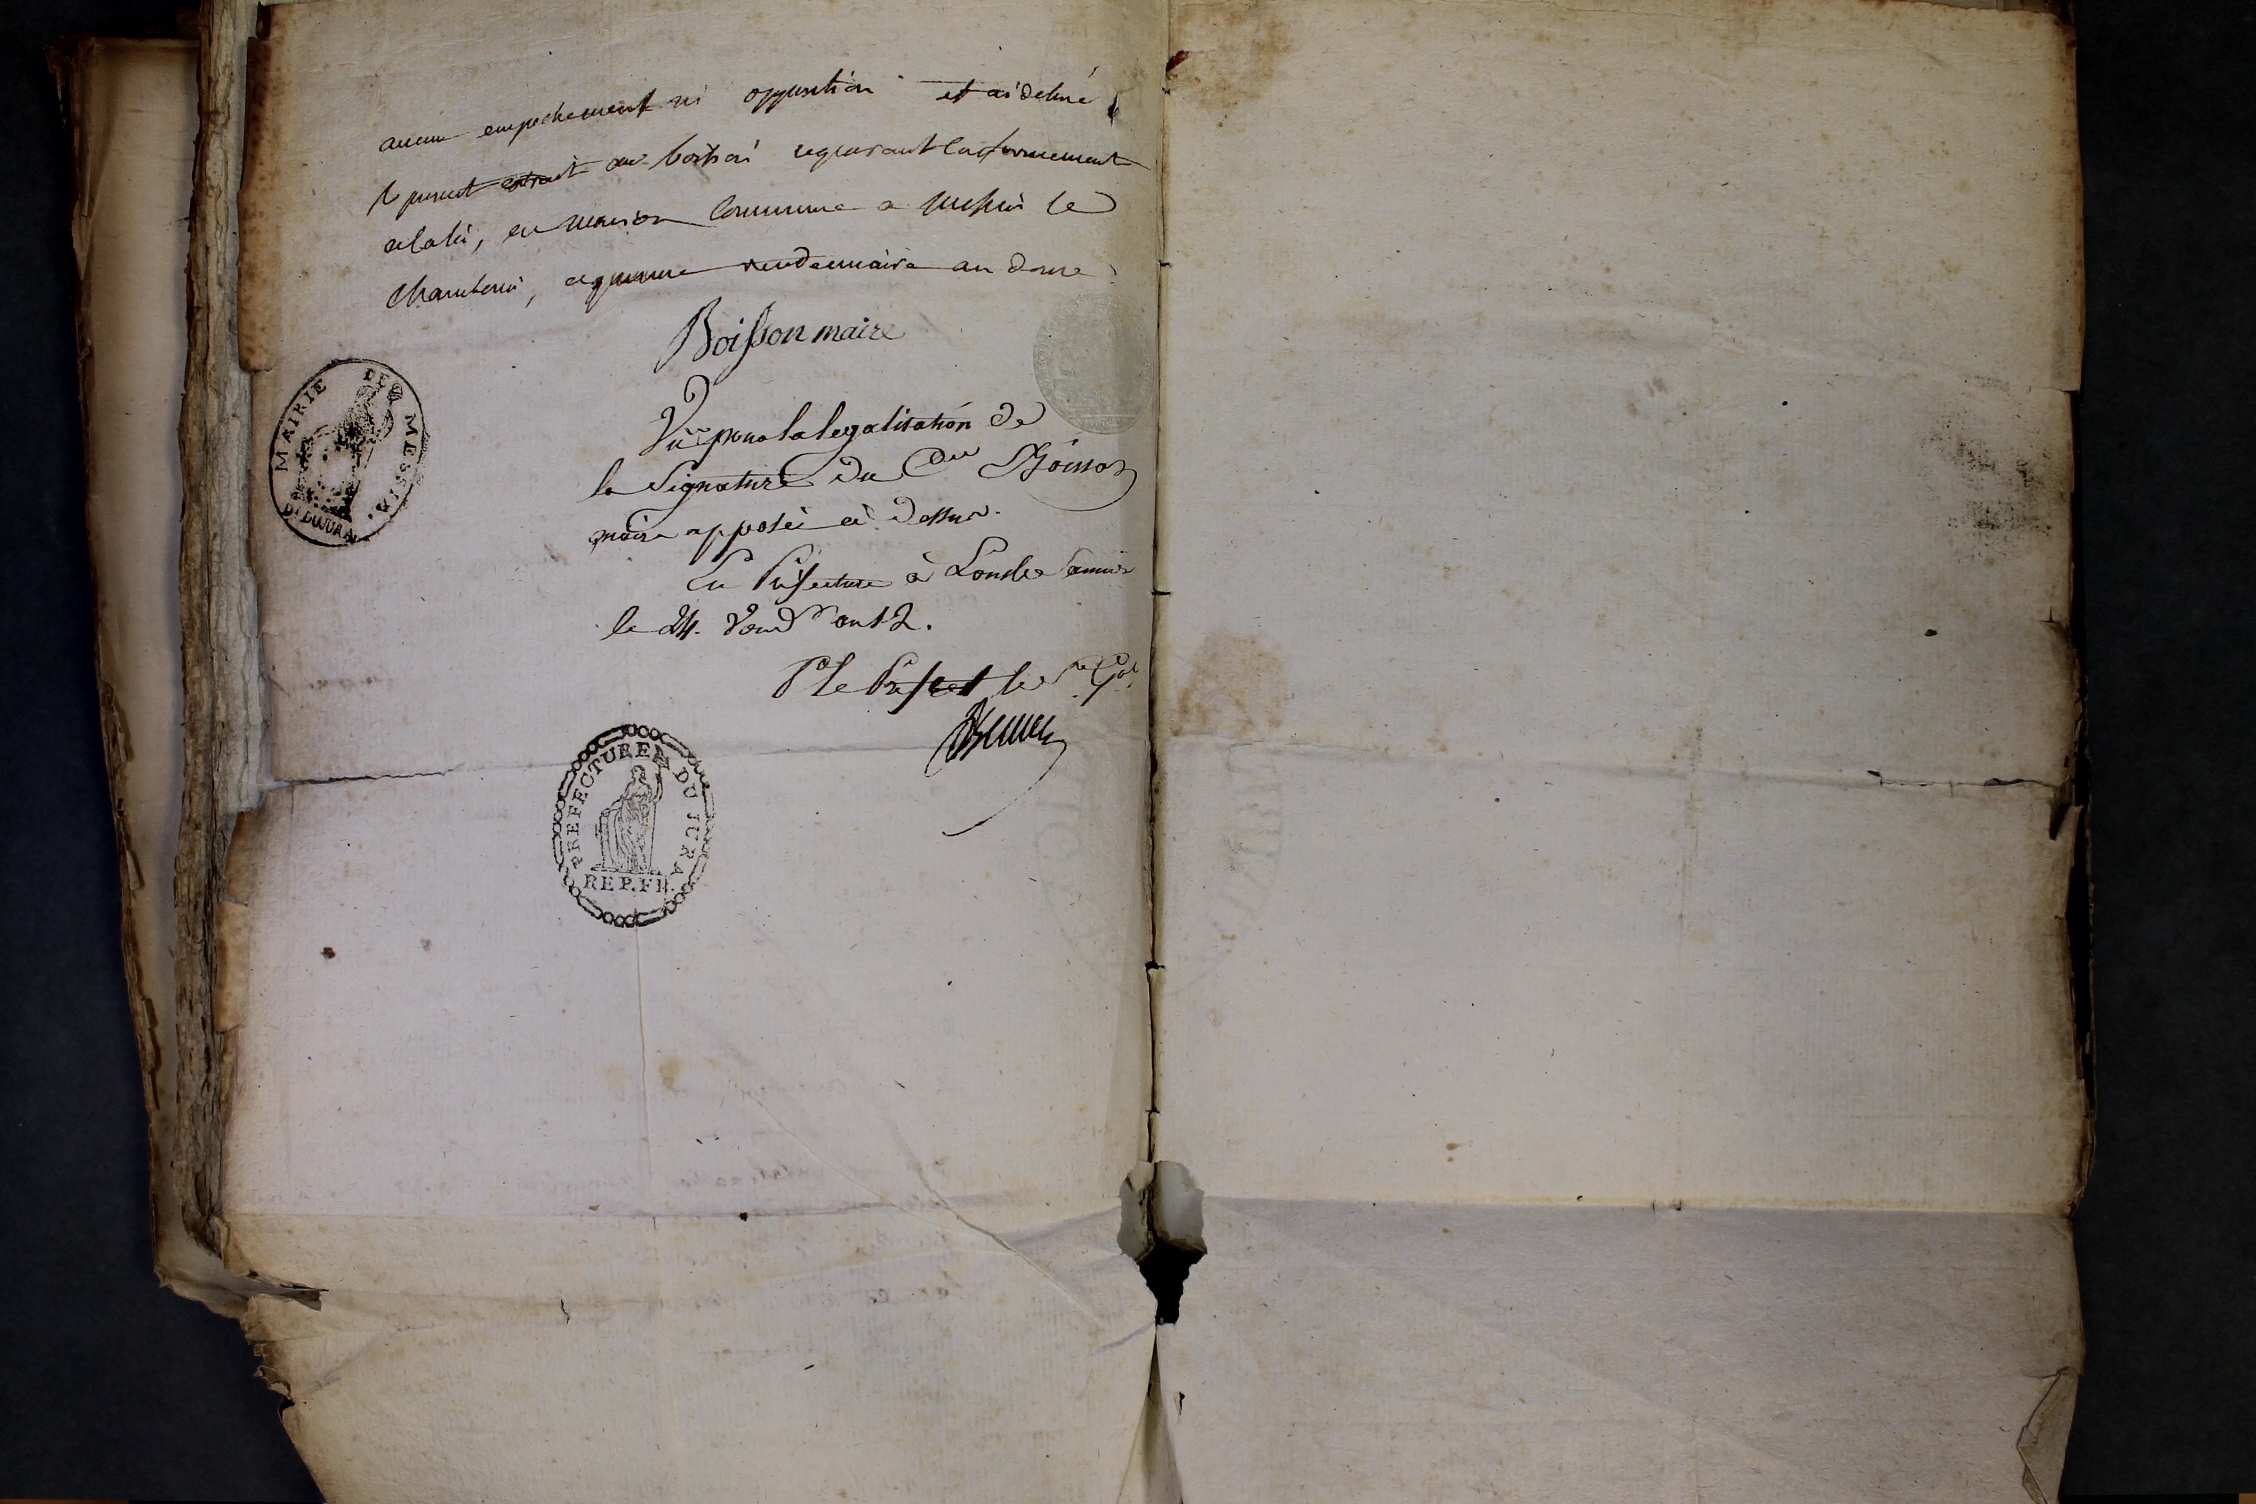 aucun empechement ni opposition et ai delivré
le present extrait au requerant conformement
a la loi, en maison commune a Messia le
Chamberia, ce quinze vendemiaire an douze
Boisson maire
MAIRIE DE MESSIA.
Dt DU JURA
Vû pour la legalisation de
la signature du Cen Boisson
maire apposée ci dessus.
En Préfecture à Lons le Saunier
le 24. Vendre an 12.
Pr le Préfet le Sre Gal
PREFECTURE DU JURA
REP. FR.